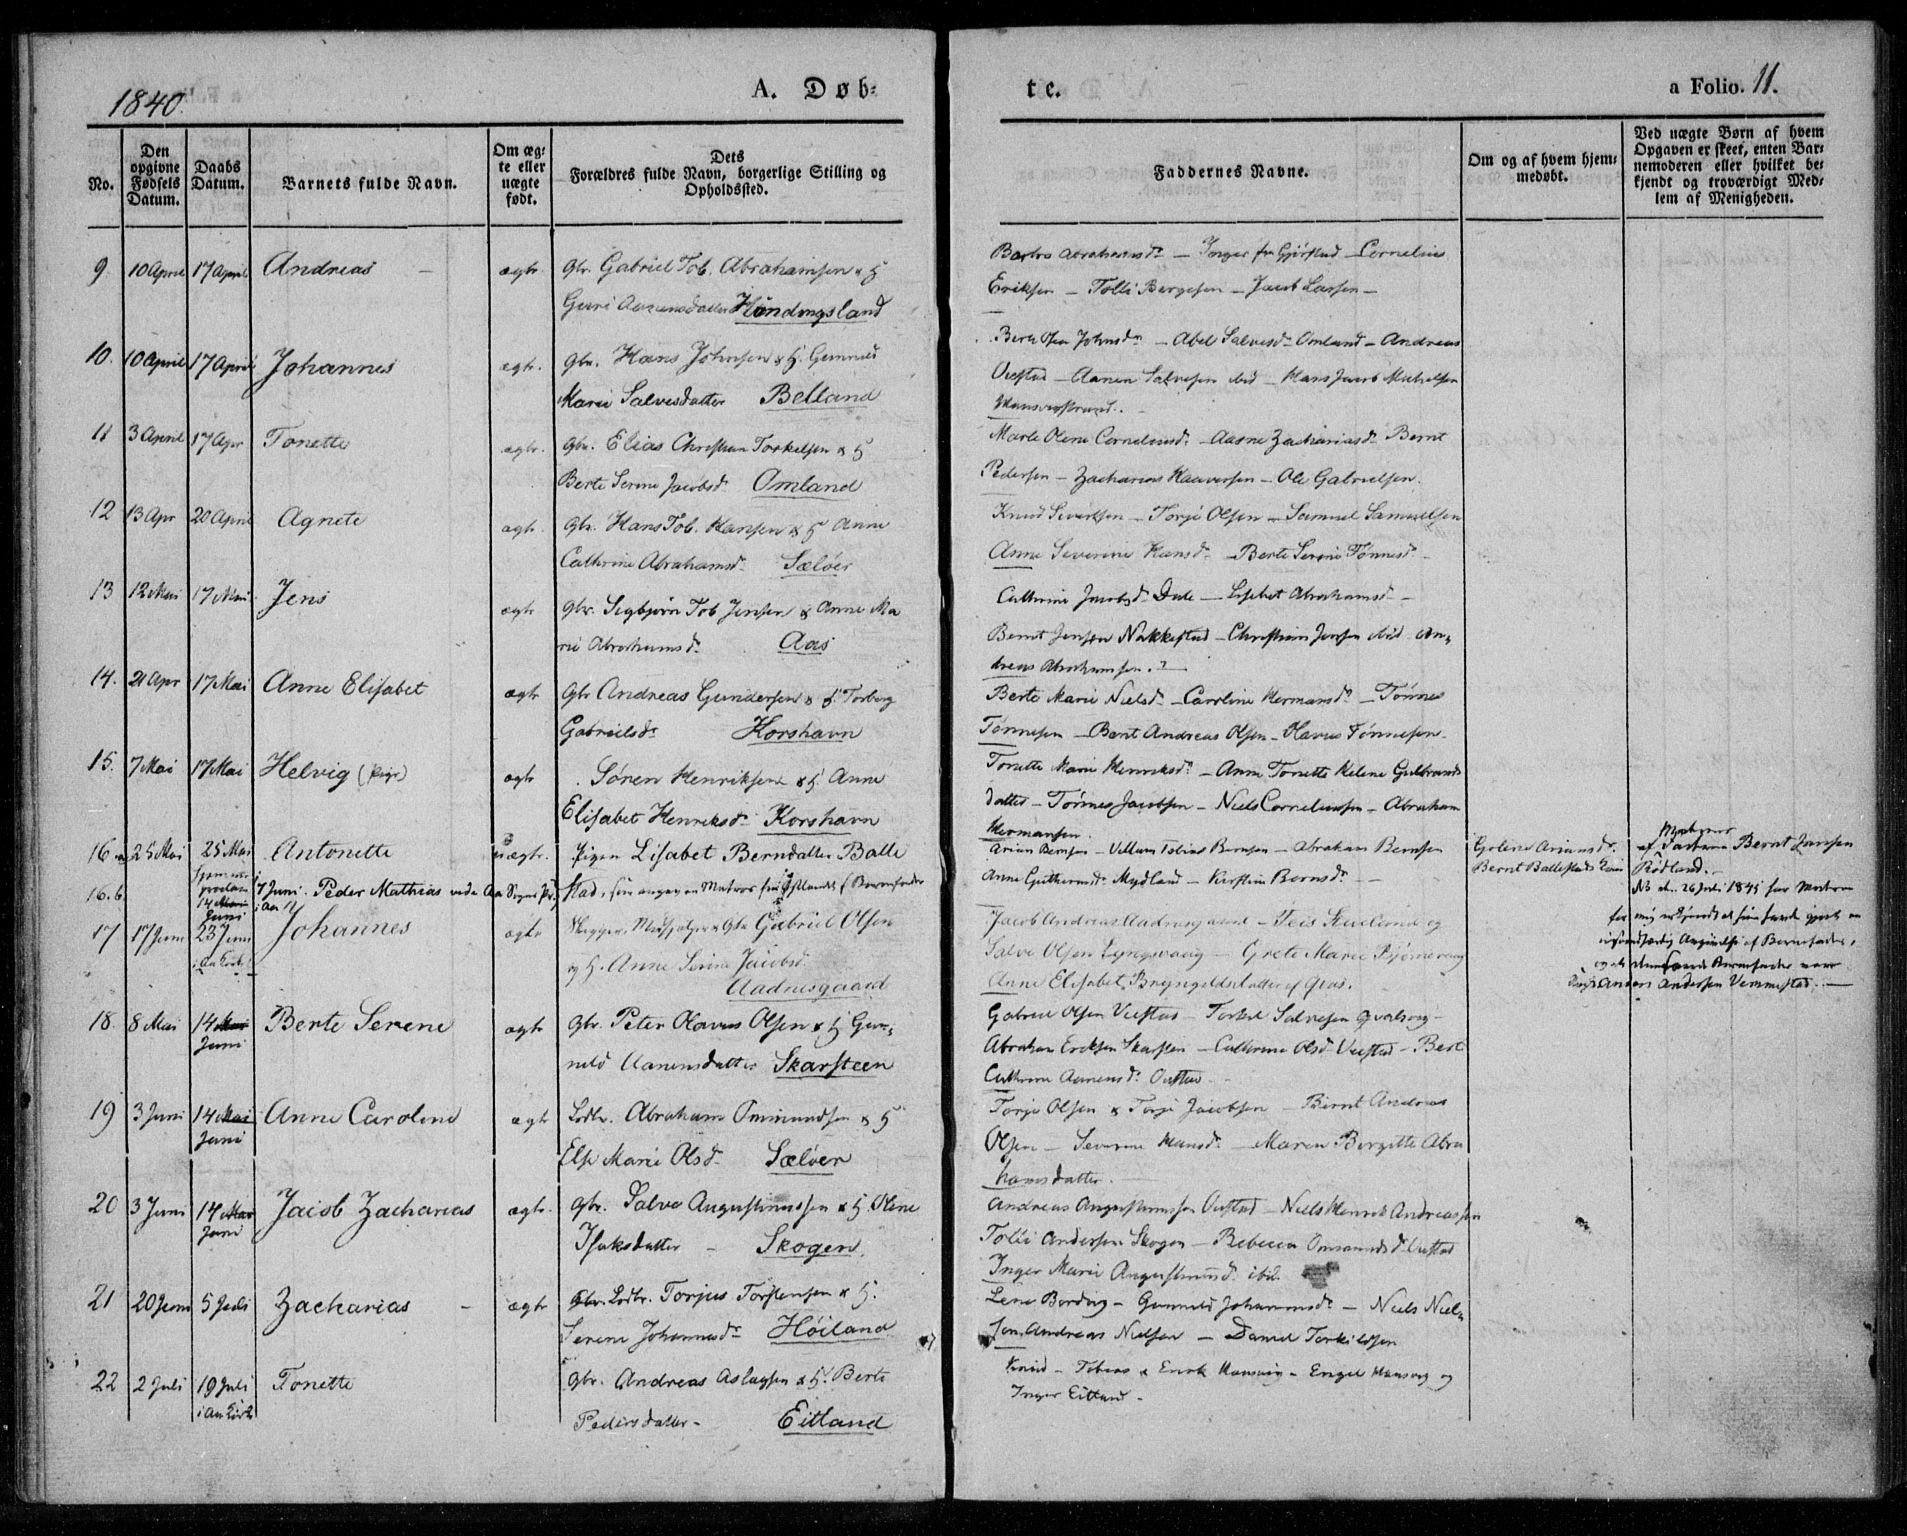 1840.
A. Døb-
te.
a Folio. 11.
No.
Den opgivne Fødsels Datum.
Daabs Datum.
Barnets fulde Navn.
Om ægte eller uægte født.
Dets Forældres fulde Navn, borgerlige Stilling og Opholdssted.
Faddernes Navne.
Om og af hvem hjemmedøbt.
Ved uægte Børn af hvem Opgaven er skeet, enten Barnemoderen eller hvilket bekjendt og troværdigt Medlem af Menigheden.
9. 10 April 17 April Andreas ægte. Gbr. Gabriel Tob. Abrahamsen & H
Guri Aanensdatter Hundingsland
Barbro Abrahamsdr — Inger Gjørstad — Cornelius
Eriksen — Tolli Bergesen — Jacob Larsen —
10. 10 April 17 April Johannes ægte. Gbr. Hans Johnsen & H. Gunnild
Marie Salvesdatter Belland
Berte Johnsdr — Abel Salvesdr Omland — Andreas
Vestad — Aanen Salvesen ibid — Hans Jacob Michelsen
11 3 April 17 Apr Tonette ægte. Gbr. Elias Christian Torkelsen & H
Berte Serine Jacobsdr Omland
Marte Olene Corneliusdr Aasne Zachariasdr Bernt
Pedersen — Zacharias Haaversen — Ole Gabrielsen.
12 13 Apr 20 April Agnete ægte. Gbr. Hans Tob. Hansen & H Anne
Cathrine Abrahamsdr Sæløer
Knud Sivertsen — Torje Olsen — Samuel Samuelsen
Anne Severine Hansdr — Berte Serine Tønnesdr
13 12 Mai 17 Mai Jens ægte Gbr. Sigbjørn Tob Jensen & Anne Ma
rie Abrahamsdr Aas
Cathrine Jacobsdr Dale — Lisebet Abrahamsdr —
Bernt Jensen Nakkestad — Christian Jensen ibid An-
dreas Abrahamsen.
14. 21 Apr 17 Mai Anne Elisabet ægte Gbr Andreas Gundersen & H. Torborg
Gabrielsdr Korshavn
Berte Marie Nielsdr — Caroline Hermansdr — Tønnes
Tønnesen — Bernt Andreas Olsen — Olavus Tønnesen
15. 7 Mai 17 Mai Helvig (Pige) ægte Søren Henriksen & H. Anne
Elisabet Henriksdr Korshavn
Tonette Marie Henriksdr — Anne Tonette Helene Gulbrands
datter — Tønnes Jacobsen — Niels Corneliussen — Abraham
Hermansen.
16 a 25 Mai 25 Mai Antonette uægte. Pigen Lisabet Berndatter Balle
Arian Bernsen — Villum Tobias Bernsen — Abraham Bernsen
Anne Guthormsdr Mydland — Kirstine Bernsdr —
Golene Ariansdr.
Bernt Ballestad
Bernt Jansen
Rødland.
16.b 7 Juni. Peder Mathias
stad,
26 Juli 1845 har Moderen
17 17 Juni 23 Juni Johannes ægte Gabriel Olsen
i Aa Kirke
og H. Anne Serine Jacobsd
Aadnesgaard
Jacob Andreas Aadnesgaard — Teis Skueland og
Salve Olsen Lyngsvaag — Grete Marie Bjørnevaag
Anne Elisabet Bryngelsdatter af Graas.
og at Barnefader var
Anders Andersen Vemmestad.
18. 8 Mai 14 Mai Juni Berte Serene ægte Gbr. Peter Olavus Olsen & H Gun-
nild Aanensdatter Skarsteen
Gabriel Olsen Vestad — Torkel Salvesen Qvalvog —
Abraham Ericksen Skarsten — Cathrine Olsdr Vestad — Bert
Cathrine Aanensdr Vestad
19 3 Juni 14 Mai Juni Anne Caroline ægte Lodbr. Abraham Ommundsen & H
Else Marie Olsdr Sæløer
Torje Olsen & Torje Jacobsen — Bernt Andreas
Olsen — Severine Hansdr — Maren Birgitte Abra
hamsdatter.
20 3 Juni 14 Mai Juni Jacob Zacharias ægte. Gbr. Salve Augustinussen & H Olene
Isaksdatter Skogen.
Andreas Augustinussen Vestad — Niels Henrik Andreassen
Tolli Andersen Skogen — Rebecca Omundsd Vestad
Inger Marie Augustinusd. ibid.
21 20 Juni 5 Juli Zacharias ægte Gbr. Lodbr. Torjus Torstensen & H.
Serene Johannesdr Høiland
Lene Bordvig — Gunnild Johannesdr — Niels Niel-
sen Andreas Nielsen — Daniel Torkildsen
22 2 Juli 19 Juli Tonette Gbr. Andreas Aslagsen & H. Berte
i Aa Kirke
Pedersdatter — Eitland
Knud — Tobias & Enok Hausvig — Engel Hausvig og
Inger Eitland —